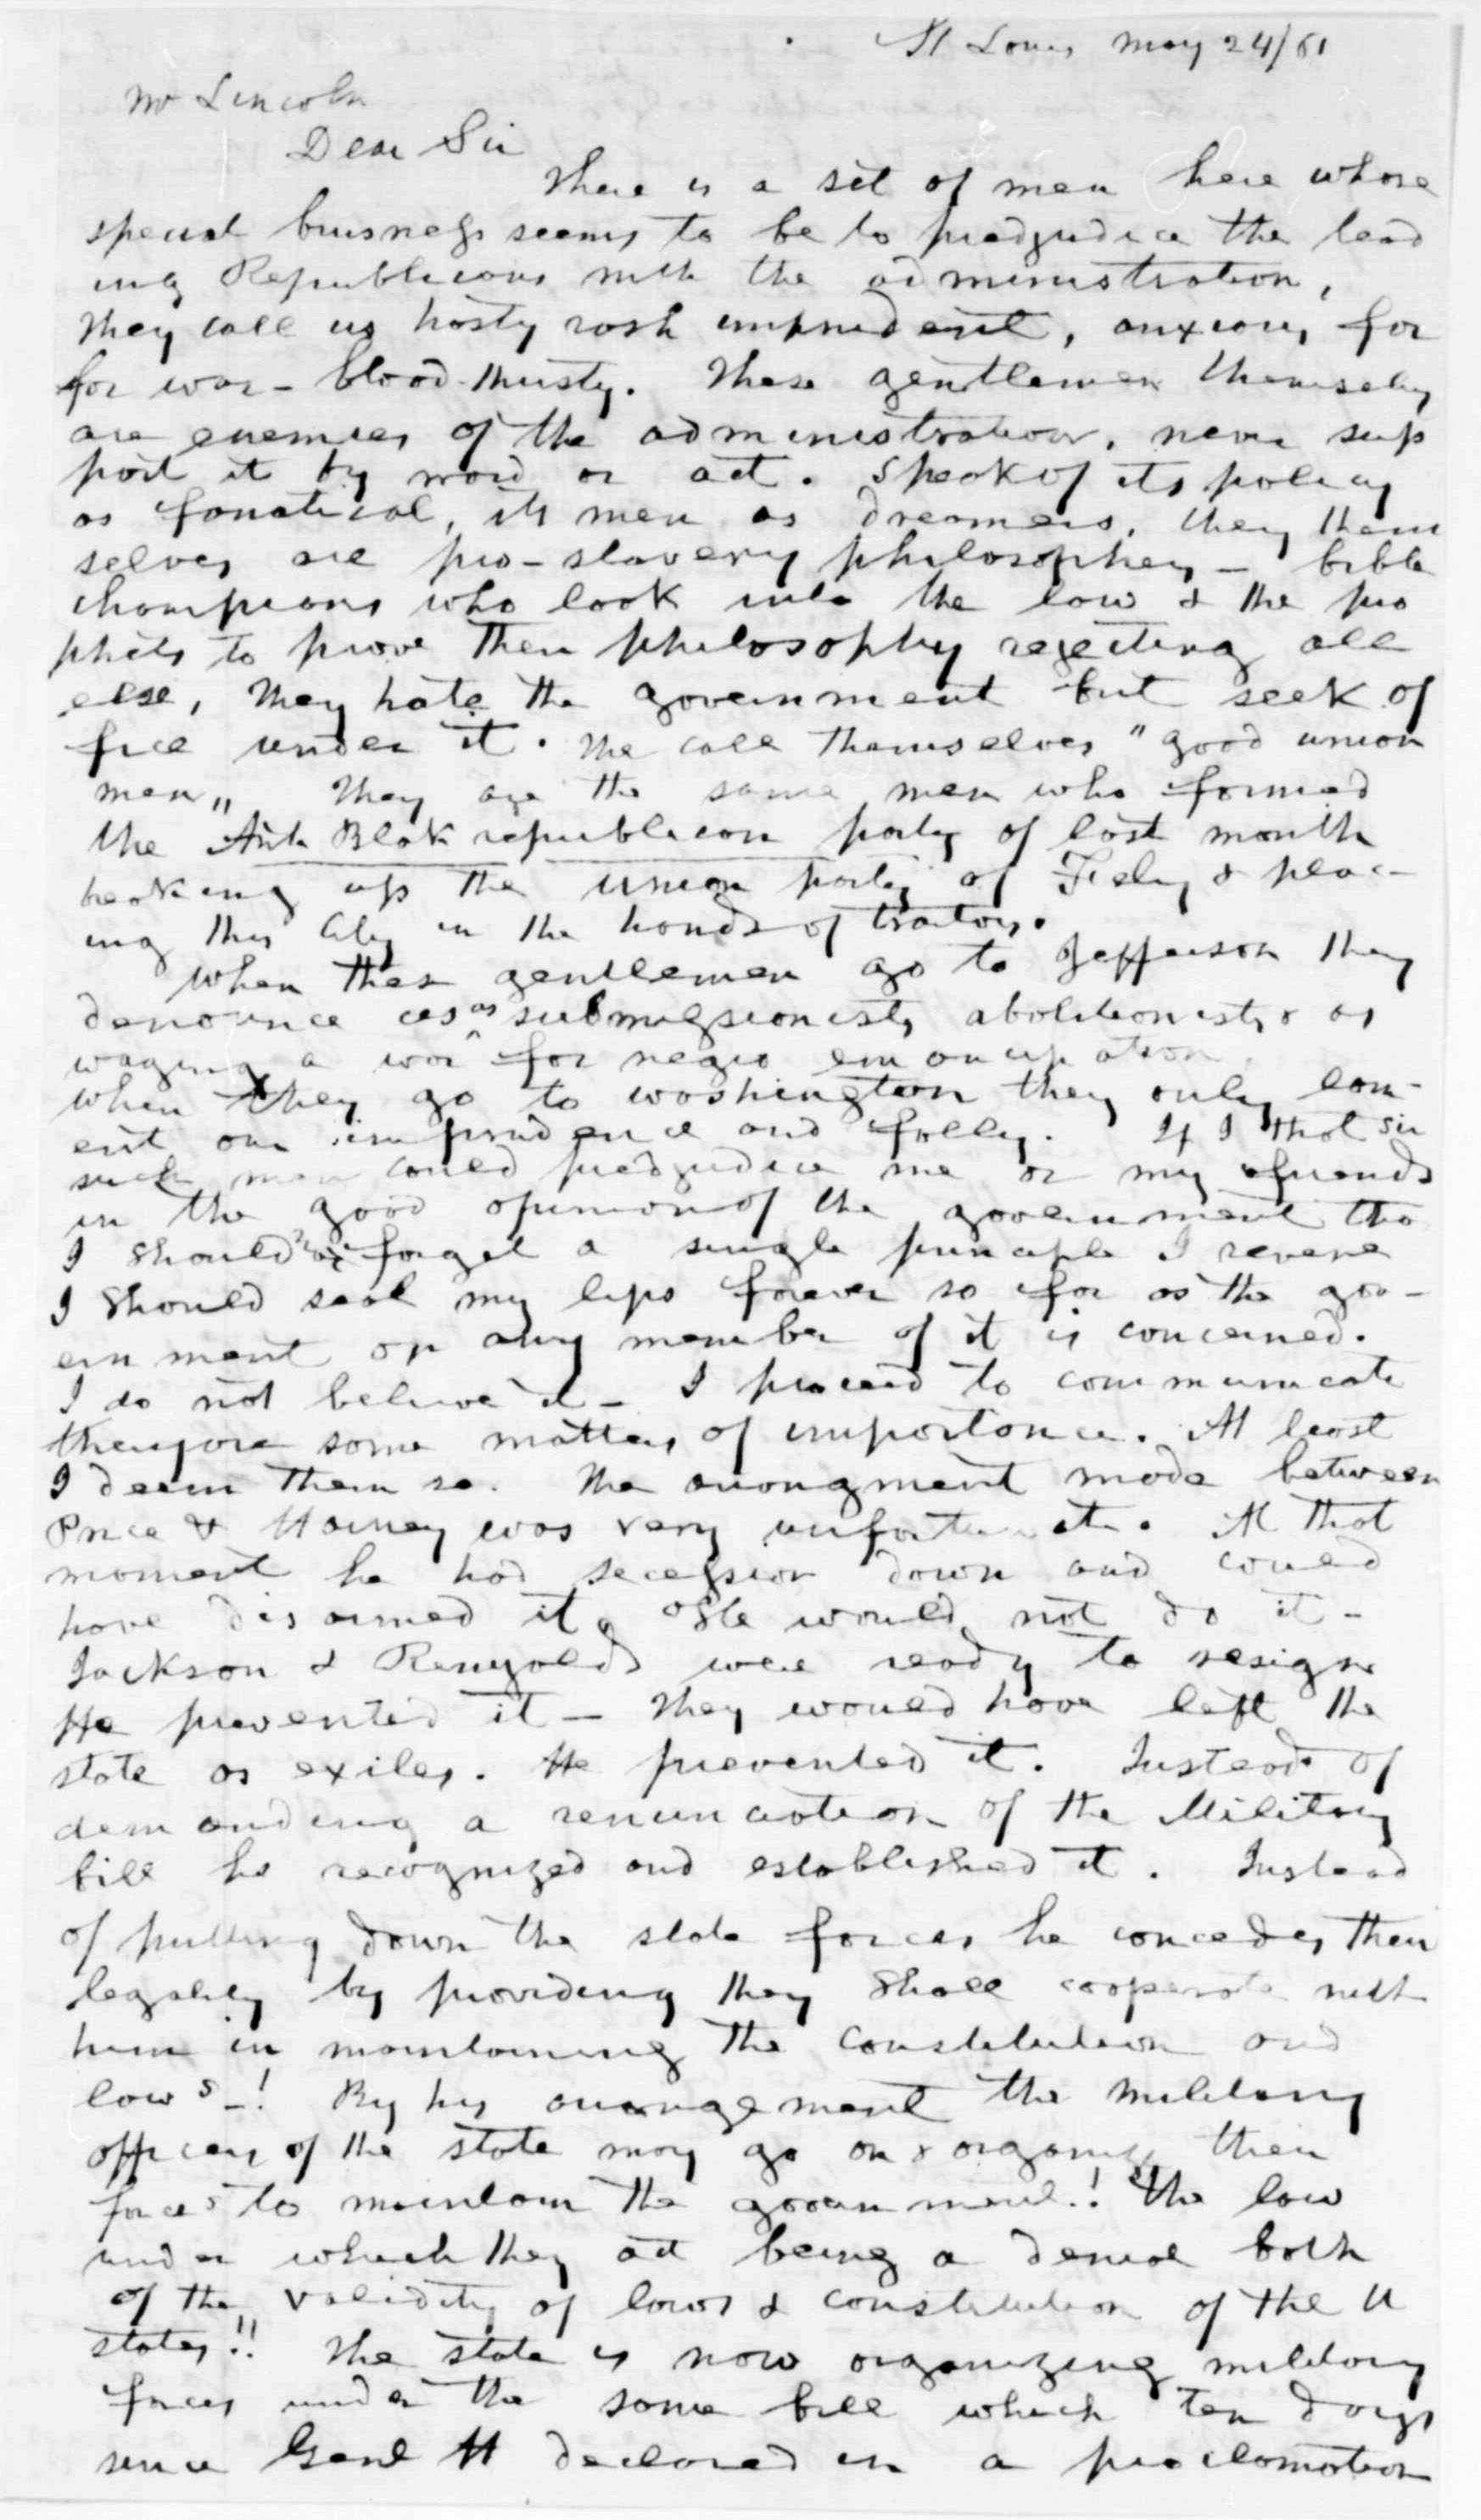 St Louis May 24/61
Mr Lincoln
Dear Sir
There is a set of men here whose
special business seems to be to predjudice the lead
ing Republicans with the administration,
They call us hasty rash imprudent, anxious for
for war - blood-thirsty. These gentlemen themselves
are enemies of the administration, never sup
port it by word or act. Speak of its policy
as fanatical, its men as dreamers, they them
selves are pro-slavery philosophers - bible
champions who look into the law & the pro
phets to prove their philosophy rejecting all
else, They hate the government but seek of
fice under it. The call themselves "good union
men" They are the same men who formed
the Anti Blak republican party of last month
breaking up the union party of Feby & plac-
ing this City in the hands of traitors.
When these gentlemen go to Jefferson they
denounce us as submissionists, abolitionists & as
waging a war for negro emancipation
when they go to Washington they only lam-
ent our imprudence and folly. If I thot sir
such men could predjudice me or my friends
in the good opinion of the government tho
I should not forget a single principle I revere
I should seal my lips forever so far as the gov-
ernment or any member of it is concerned.
I do not believe it - I proceed to communicate
therefore some matters of importance. At least
I deem them so. The arrangment made between
Price & Harney was very unfortunate. At that
moment he had secession down and could
have disarmed it. He would not do it -
Jackson & Reynolds were ready to resign
He prevented it - They would have left the
state as exiles. He prevented it. Instead of
demanding a renunciation of the Military
bill he recognized and established it. Instead
of putting down the state forces he concedes their
legality by providing they shall cooperate with
him in maintaining the constitution and
laws -! By his arrangement the military
officers of the state may go on & organize their
forces to maintain the government.! The law
under which they act being a denial both
of the validity of laws & constitution of the U
states!! The state is now organizing military
forces under the same bill which ten days
since Genl H declared in a proclamation